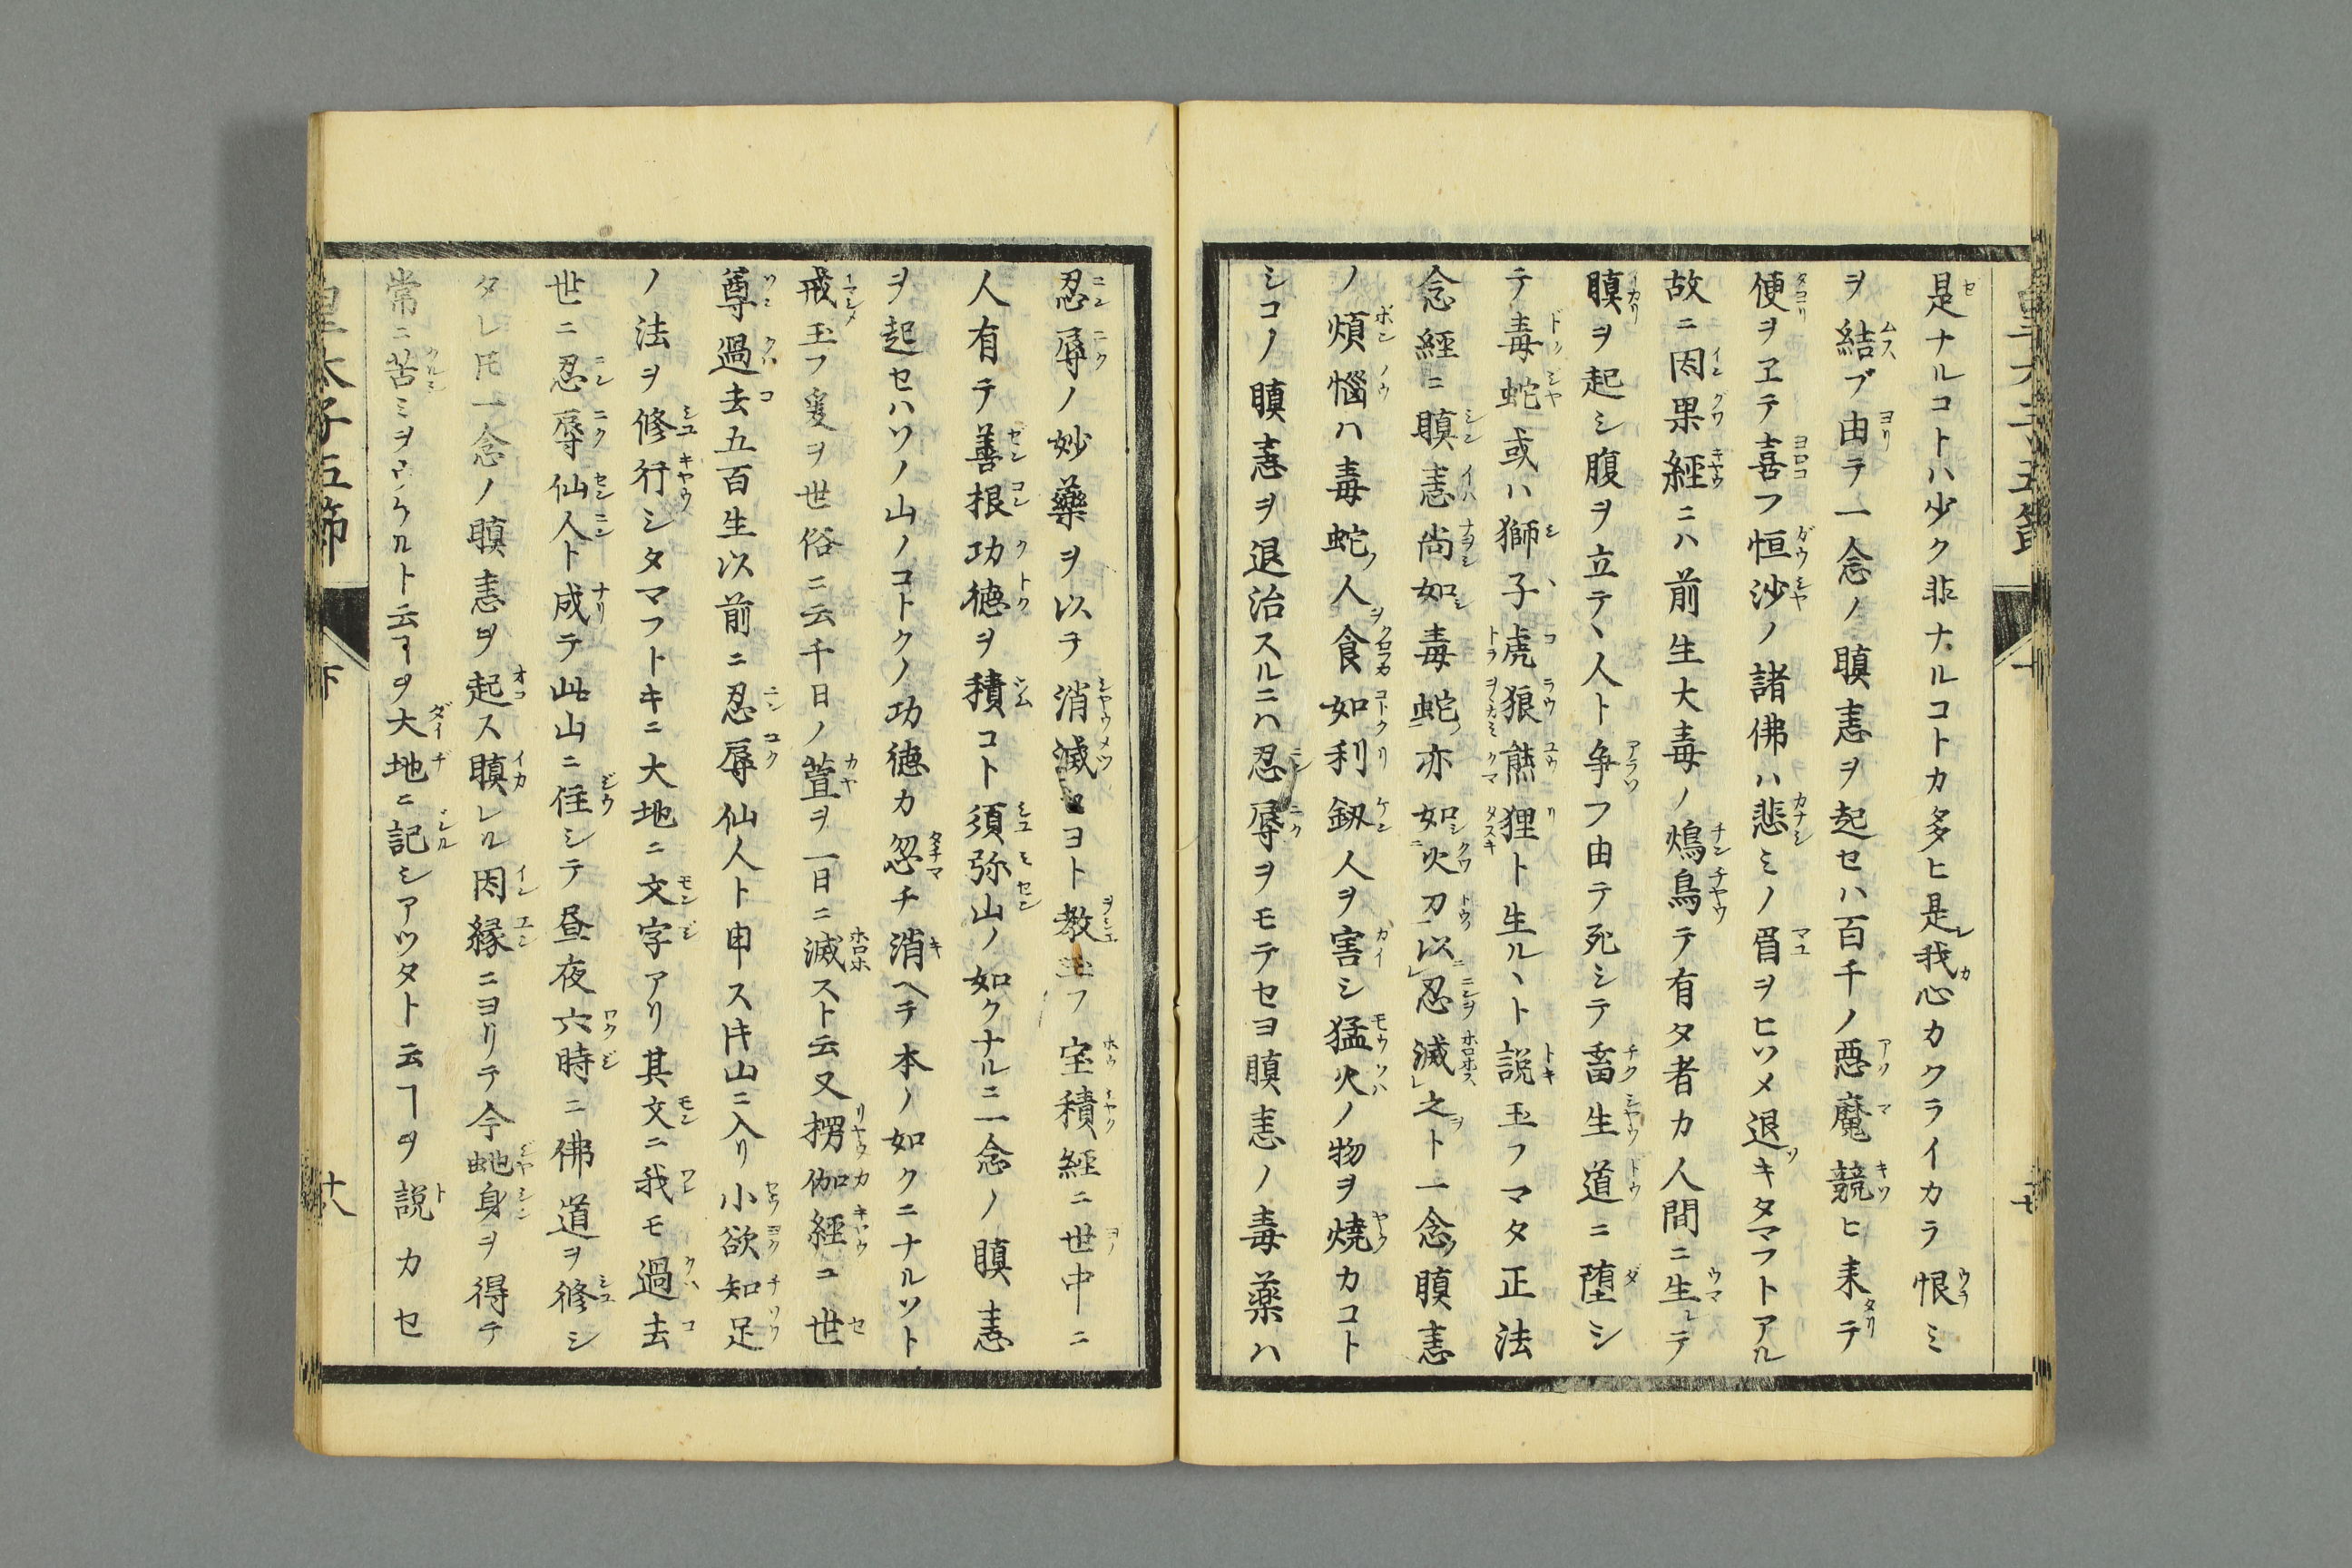 是ナルコトハ少ク非ナルコトカ多ヒ是レ我心カクライカラ恨ミ
ヲ結ブ由テ一念ノ瞋恚ヲ起セハ百千ノ悪魔競ヒ来テ
便ヲヱテ喜フ恒沙ノ諸佛ハ悲ミノ眉ヒソメ退キタマフトアル
故ニ因果經ニハ前生大毒ノ鴆鳥テ有タ者カ人間ニ生レテ
瞋ヲ起シ腹ヲ立テ、人ト争フ由テ死シテ畜生道ニ堕シ
テ毒蛇或ハ獅子虎狼熊狸ト生ル、ト説玉フマタ正法
念經ニ瞋恚尚如毒蛇亦如火刀以忍滅之ト一念瞋恚
ノ煩惱ハ毒蛇人食如利釼人ヲ害シ猛火ノ物ヲ焼カコト
シコノ瞋恚ヲ退治スルニハ忍辱ヲモテセヨ瞋恚ノ毒薬ハ
忍辱ノ妙藥ヲ以テ消滅セヨト教玉フ宝積經ニ世中ニ
人有テ善根功徳ヲ積コト須弥山ノ如クナルニ一念ノ瞋恚
ヲ起セハソノ山ノコトクノ功徳カ忽チ消ヘテ本ノ如クニナルソト
戒玉フ爰ヲ世俗ニ云千日ノ萱ヲ一日ニ滅スト云又楞伽經ニ世
尊過去五百生以前ニ忍辱仙人ト申スㇳキ山ニ入リ小欲知足
ノ法ヲ修行シタマフトキニ大地ニ文字アリ其文ニ我モ過去
世ニ忍辱仙人ト成テ此山ニ住シテ昼夜六時ニ佛道ヲ修シ
タレ𪜈一念ノ瞋恚ヲ起ス瞋レル因縁ニヨリテ今虵身ヲ得テ
常ニ苦ミヲウクルト云ヿヲ大地ニ記シアツタト云ヿヲ説カセ
皇太子五節
下